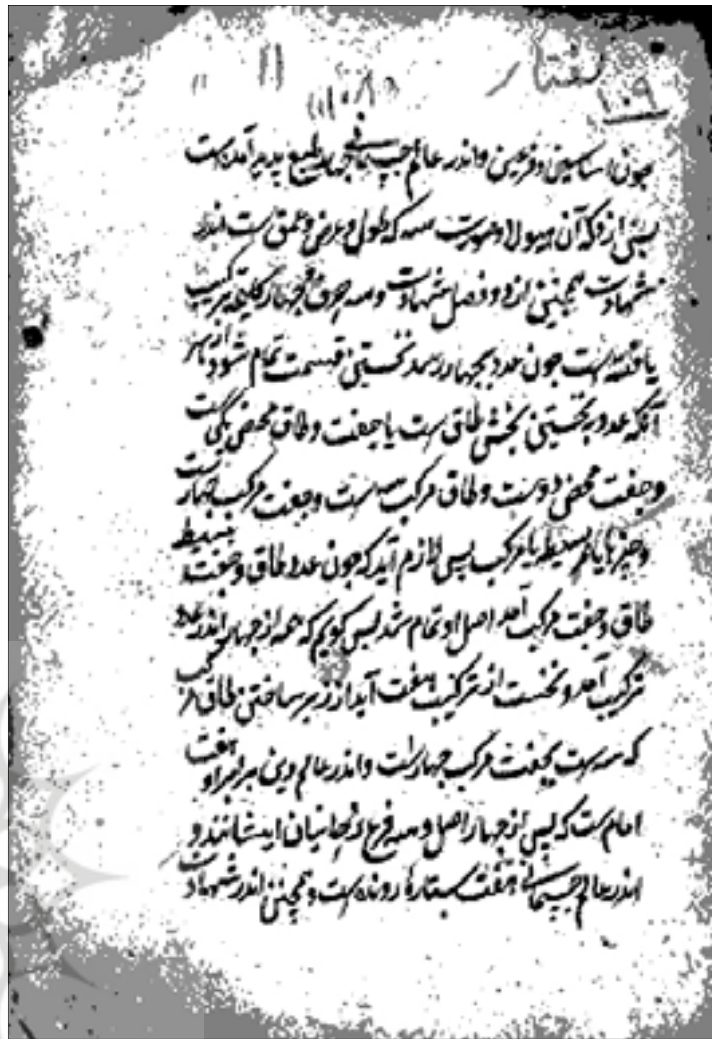 گفتار
۱۰۹
چون اساسین و فرعین و اندر عالم جسمانی چهار طبع پدید آمدست
پس از وکه آن هیولا و صورت سه که طول و عرض و عمق است اندر
شهادت همچنین از دو فصل شهادت و سه حرف و چهار کلمه ترکیب
یافته است چون عدد بچهار رسد نخستین قسمت تمام شود از بهر
آنکه عدد بر نخستین بخش طاق است یا جفت و طاق محض یکیست
و جفت محض دوست و طاق مرکب سه است و جفت مرکب چهارست
و چیزها یا بسیط یا مرکب پس لازم آید که چون عدد طاق و جفت بسیط
طاق و جفت مرکب آمد اصل او تمام شد پس گویم که همه از چهار اندر عدد
ترکیب آمد و نخست از ترکیب هفت آید از زبر ساختن طاق مرکب
که سه است بجفت مرکب چهار است و اندر عالم دین برابر او هفت
امام است که پس از چهار اصل و سه فرع روحانیان ایشانند و
اندر عالم جسمانی هفت ستاره رونده است و همچنین اندر شهادت